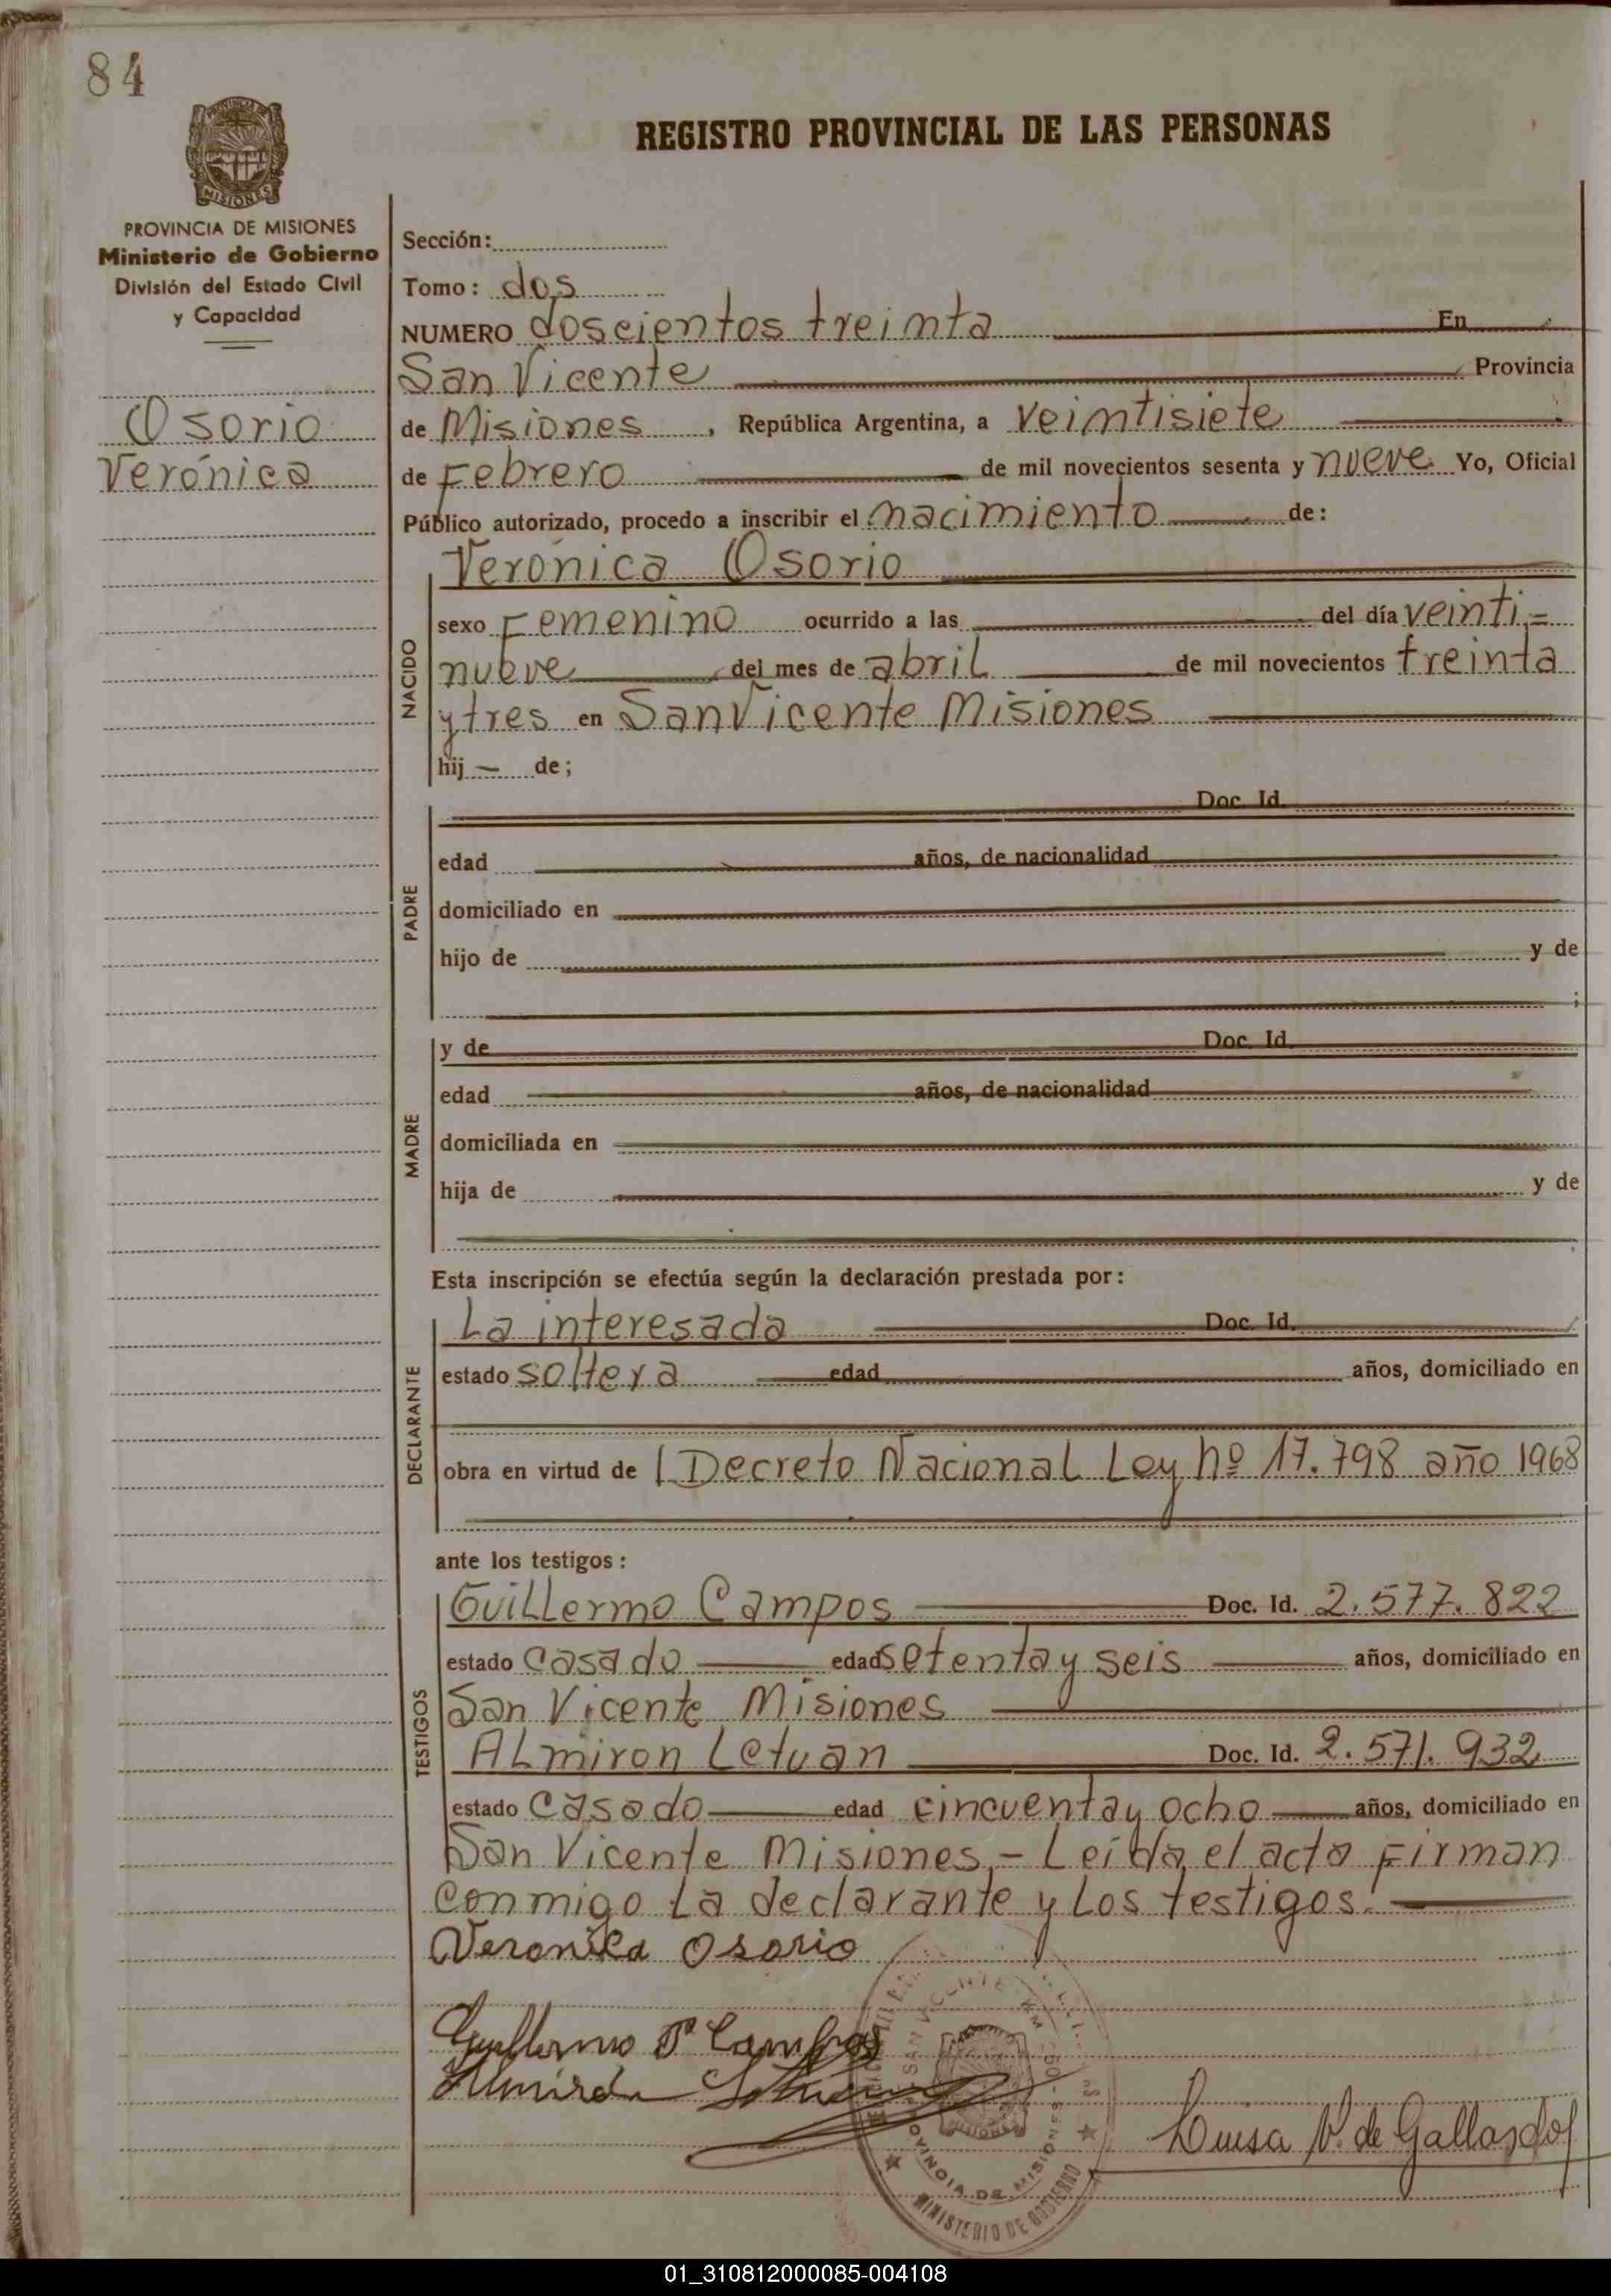 84
PROVINCIA DE MISIONES
Ministerio de Gobierno
División del Estado Civil
y Capacidad
Osorio
Verónica
REGISTRO PROVINCIAL DE LAS PERSONAS
Sección:
Tomo: dos
NUMERO doscientos treinta En
San Vicente Provincia
de Misiones, República Argentina, a veintisiete
de Febrero de mil novecientos sesenta y nueve Yo, Oficial
Público autorizado, procedo a inscribir el nacimiento de:
NACIDO
Verónica Osorio
sexo Femenino ocurrido a las del día veinti=
nueve del mes de abril de mil novecientos treinta
y tres en San Vicente Misiones
hij — de;
PADRE
Doc. Id.
edad años, de nacionalidad
domiciliado en
hijo de y de
;
MADRE
y de Doc. Id.
edad años, de nacionalidad
domiciliada en
hija de y de
Esta inscripción se efectúa según la declaración prestada por:
DECLARANTE
La interesada Doc. Id.
estado soltera edad años, domiciliado en
obra en virtud de l Decreto Nacional Ley Nº 17.798 año 1968
ante los testigos:
TESTIGOS
Guillermo Campos Doc. Id. 2.577.822
estado casado edad setenta y seis años, domiciliado en
San Vicente Misiones
Almiron Letuan Doc. Id. 2.571.932
estado casado edad cincuenta y ocho años, domiciliado en
San Vicente Misiones.- Leída el acta Firman
conmigo La declarante y Los testigos.
Veronica Osorio
Guillermo Campos
Luisa V. de Gallardo
SAN VICENTE
PROVINCIA DE MISIONES
MINISTERIO DE GOBIERNO
01_310812000085-004108